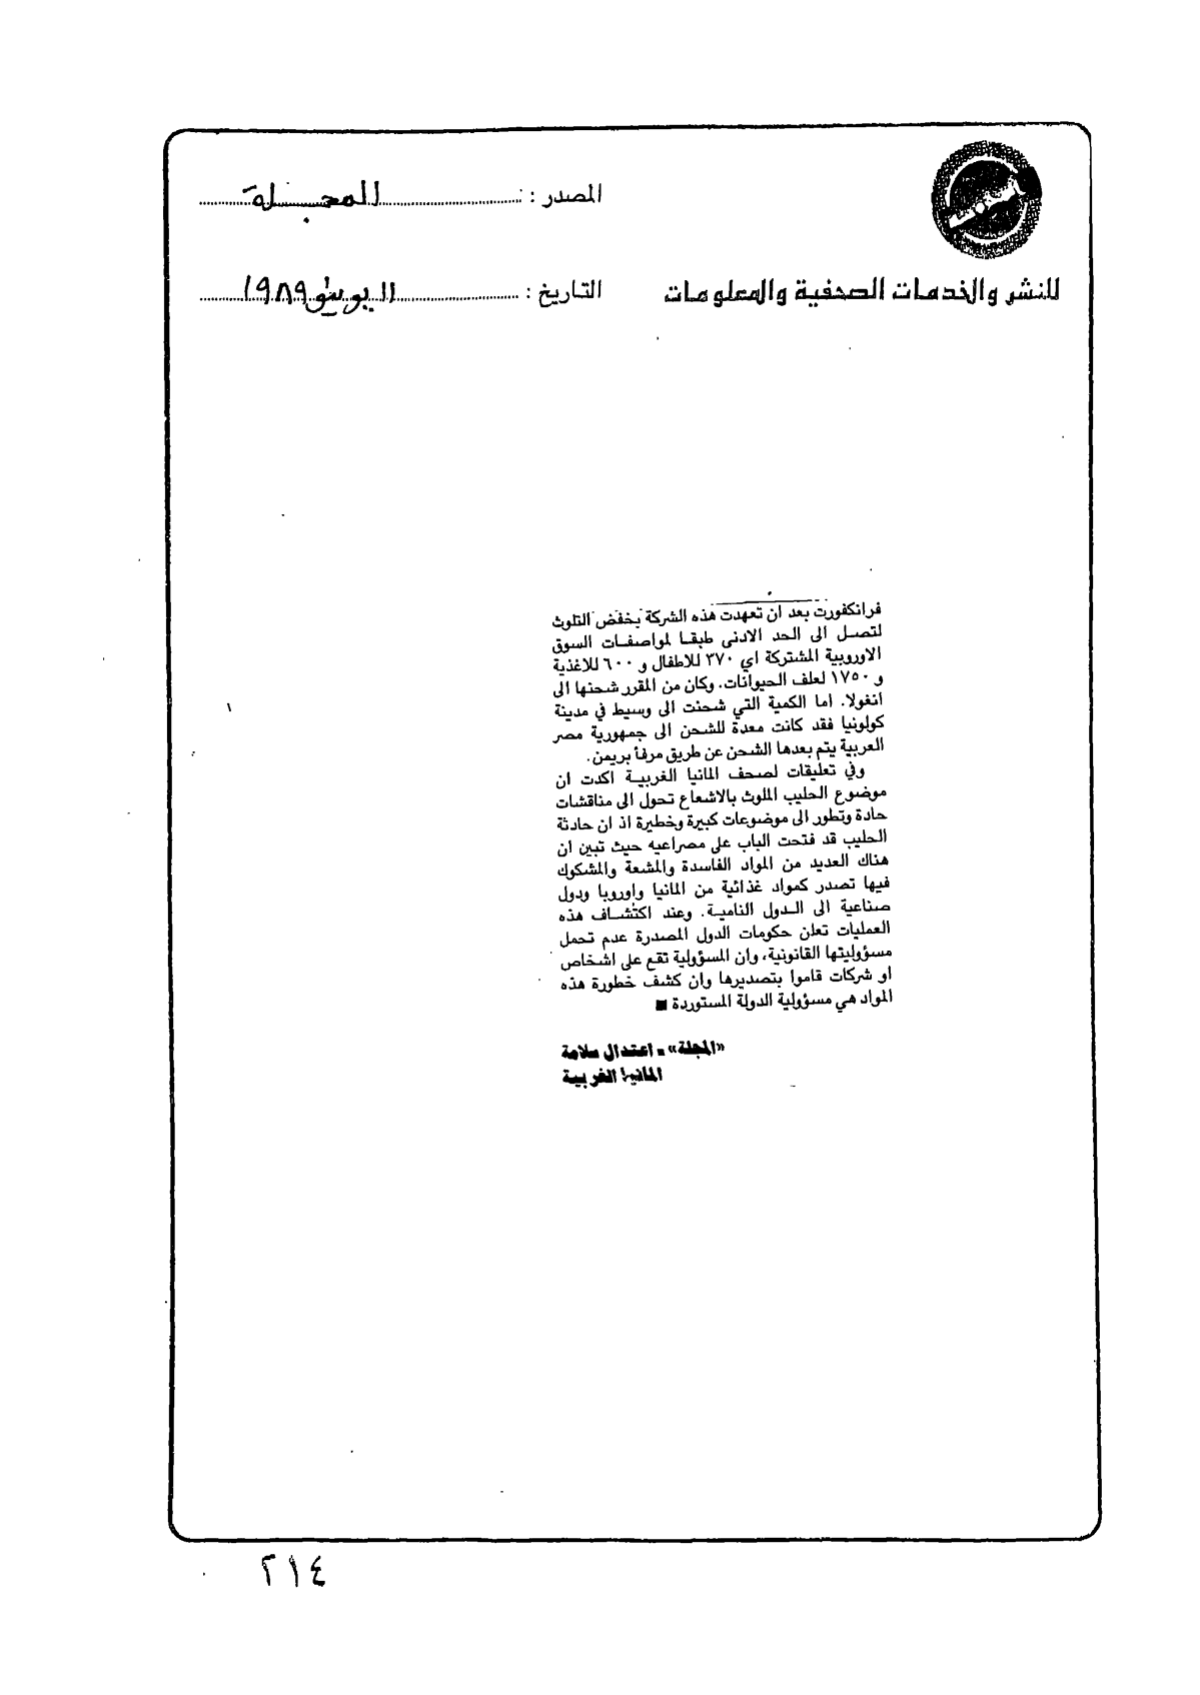 المصدر : المجلة
للنشر والخدمات الصحفية والمعلومات
التاريخ : ١١ يونيو ١٩٨٩
فرانكفورت بعد ان تعهدت هذه الشركة بخفض التلوث
لتصل الى الحد الادنى طبقا لمواصفات السوق
الاوروبية المشتركة اي ٣٧٠ للاطفال و ٦٠٠ للاغذية
و ١٧٥٠ لعلف الحيوانات. وكان من المقرر شحنها الى
انغولا. اما الكمية التي شحنت الى وسيط في مدينة
كولونيا فقد كانت معدة للشحن الى جمهورية مصر
العربية يتم بعدها الشحن عن طريق مرفأ بريمن.
وفي تعليقات لصحف المانيا الغربية اكدت ان
موضوع الحليب الملوث بالاشعاع تحول الى مناقشات
حادة وتطور الى موضوعات كبيرة وخطيرة اذ ان حادثة
الحليب قد فتحت الباب على مصراعيه حيث تبين ان
هناك العديد من المواد الفاسدة والمشعة والمشكوك
فيها تصدر كمواد غذائية من المانيا واوروبا ودول
صناعية الى الدول النامية. وعند اكتشاف هذه
العمليات تعلن حكومات الدول المصدرة عدم تحمل
مسؤوليتها القانونية، وان المسؤولية تقع على اشخاص
او شركات قاموا بتصديرها وان كشف خطورة هذه
المواد هي مسؤولية الدولة المستوردة ■
«المجلة» - اعتدال سلامة
المانيا الغربية
٢١٤